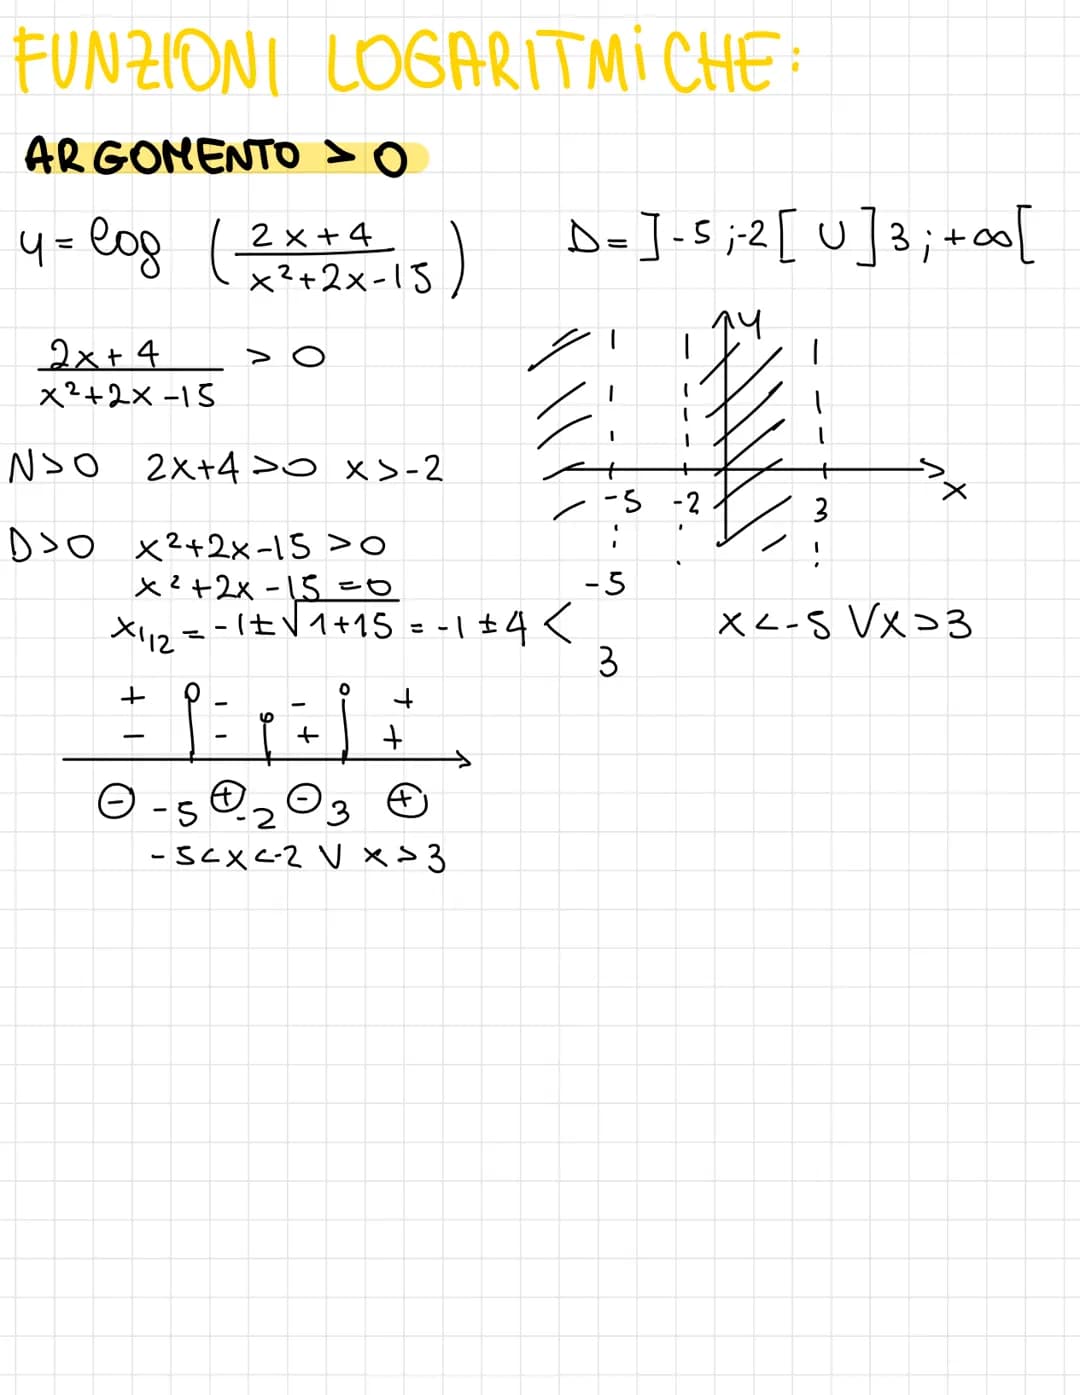 FUNZIONI LOGARITMiCHE:
ARGOMENTO > 0
y = log ( (2x+4)/(x²+2x-15) ) D=]-5;-2[ U ]3;+∞[
(2x+4)/(x²+2x-15) > 0
y
N>0 2x+4>0 x>-2
x
-5 -2 3
D>0 x²+2x-15>0
x²+2x-15=0
x1/2 = -1±√1+15 = -1±4 < -5 3 x<-5 Vx>3
+ - - +
- - + +
- -5 + -2 - 3 +
-5<x<-2 V x>3